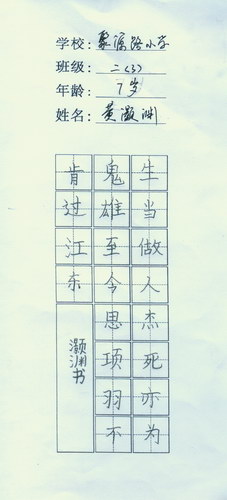 学校：聚源路小学
班级：二（3）
年龄：7岁
姓名：黄灏渊
生当做人杰死亦为
鬼雄至今思项羽不
肯过江东
灏渊书